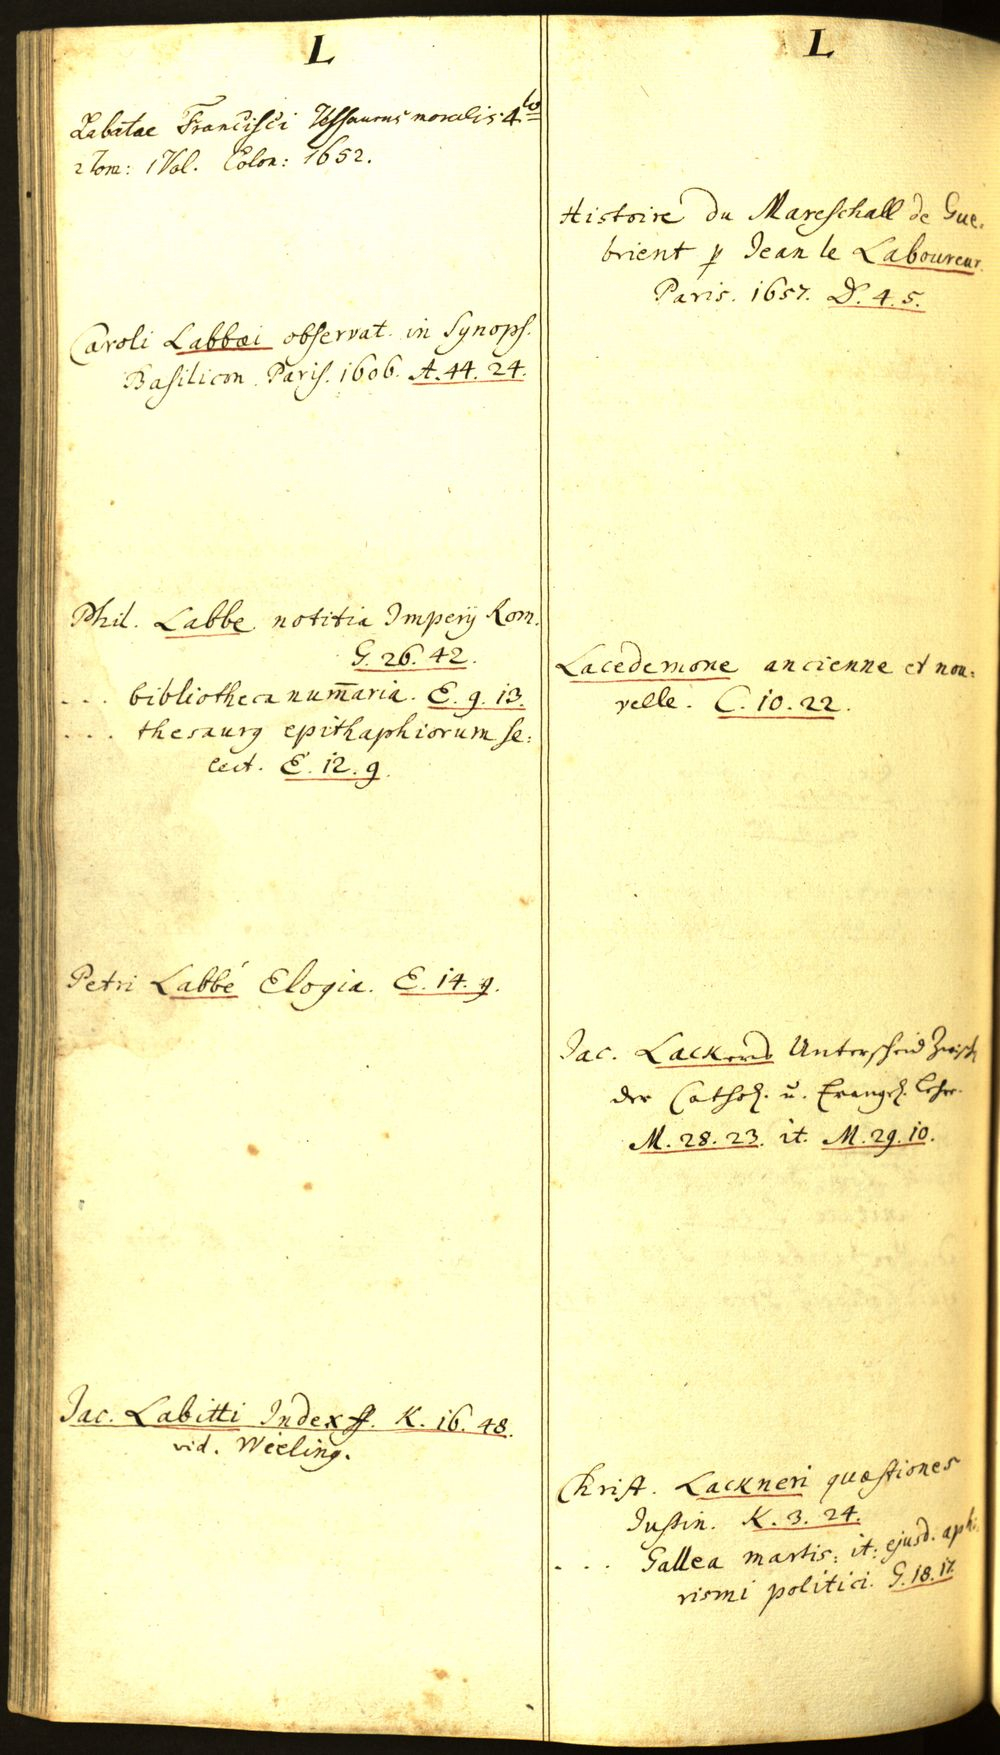 L
Labatae Francisci Thesaurus moralis. 4to
2 Tom: 1 Vol. Colon: 1652.
Caroli Labbæi observat. in Synops.
Basilicon. Paris. 1606. A. 44. 24.
Phil. Labbe notitia Imperij Rom.
G. 26. 42.
... bibliotheca num̄aria. E. 9. 13.
... thesaurg epithaphiorum se:
lect. E. 12. 9.
Petri Labbé Elogia. E. 14. 9.
Jac. Labitti Index ff. K. 16. 48.
vid. Wieling.
L
Histoire du Mareschall de Gue:
brient p Jean le Laboureur.
Paris. 1657. D. 4. 5.
Lacedemone ancienne et nou:
velle. C. 10. 22.
Jac. Lackers Unterscheid Zwisch
der Cathol. u. Evangel. Lehre.
M. 28. 23. it. M. 29. 10.
Christ. Lackneri quæstiones
Justin. K. 3. 24.
... Gallea martis: it: ejusd. apho
rismi politici. G. 18. 17.